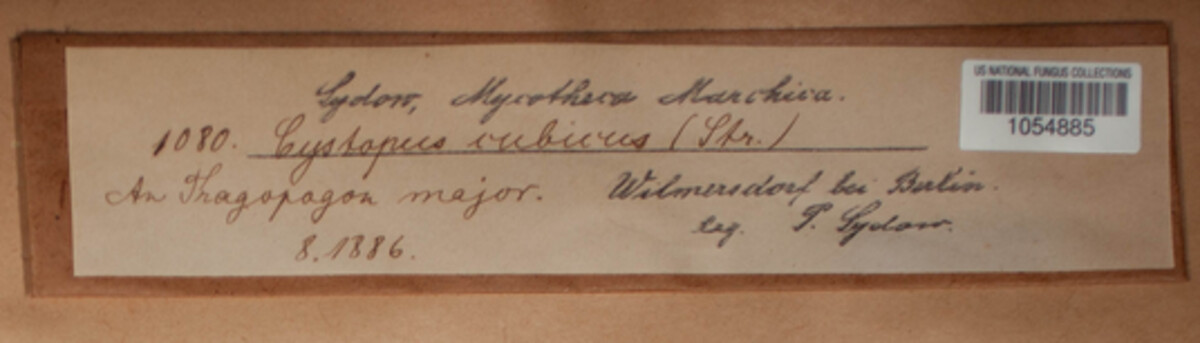 Sydow, Mycotheca Marchica.
US NATIONAL FUNGUS COLLECTIONS
1054885
1080. Cystopus cubicus (Str.)
An Tragopogon major. Wilmersdorf bei Berlin.
8.1886. leg. P. Sydow.